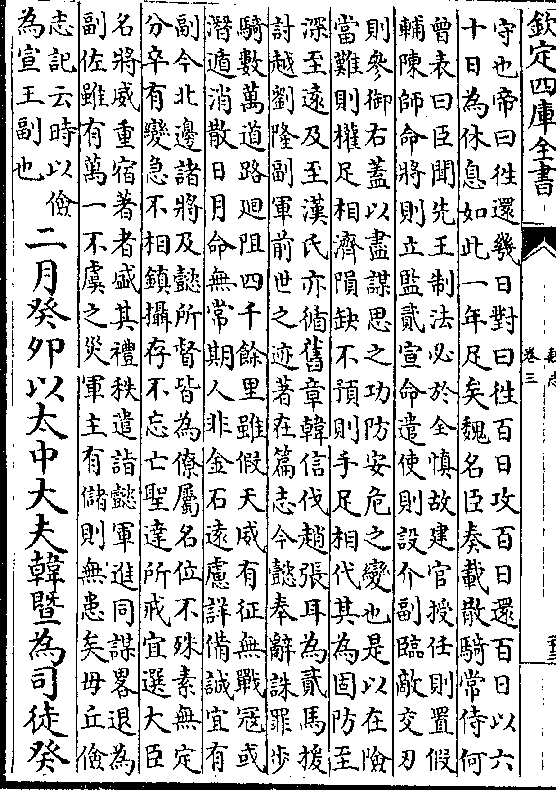 欽定四庫全書
魏志
卷三
守也帝曰徃還幾日對曰徃百日攻百日還百日以六
十日為休息如此一年足矣魏名臣奏載散騎常侍何
曾表曰臣聞先王制法必於全慎故建官授任則置假
輔陳師命將則立監貳宣命遣使則設介副臨敵交刃
則參御右蓋以盡謀思之功防安危之變也是以在險
當難則權足相濟隕缺不預則手足相代其為固防至
深至遠及至漢氏亦循舊章韓信伐趙張耳為貳馬援
討越劉隆副軍前世之迹著在篇志今懿奉辭誅罪步
騎數萬道路迴阻四千餘里雖假天威有征無戰冦或
潛遁消散日月命無常期人非金石遠慮詳備誠宜有
副今北邊諸將及懿所督皆為僚屬名位不殊素無定
分卒有變急不相鎮攝存不忘亡聖達所戒宜選大臣
名將威重宿著者盛其禮秩遣詣懿軍進同謀畧退為
副佐雖有萬一不虞之災軍主有儲則無患矣毋丘儉
志記云時以儉
為宣王副也
二月癸夘以太中大夫韓暨為司徒癸